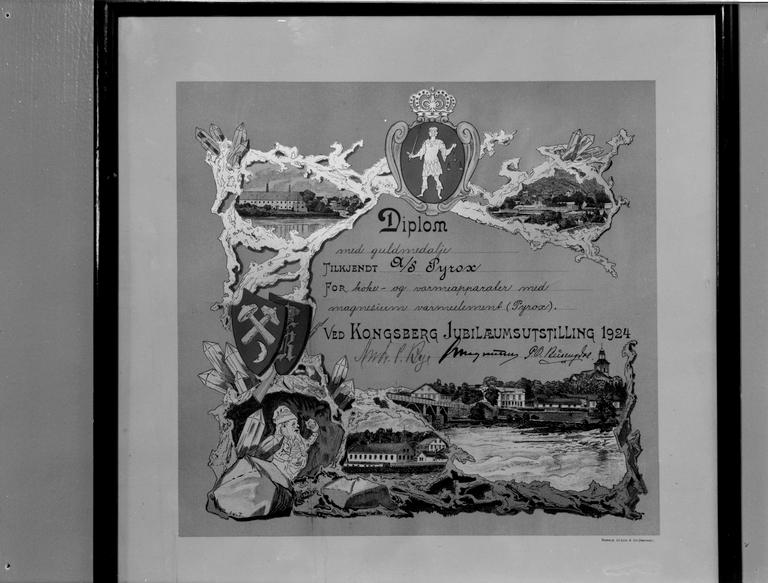 Diplom
med guldmedalje
TILKJENDT A/S Pyrox
FOR koke- og varmeapparater med
magnesium varmeelement (Pyrox).
VED KONGSBERG JUBILÆUMSUTSTILLING 1924